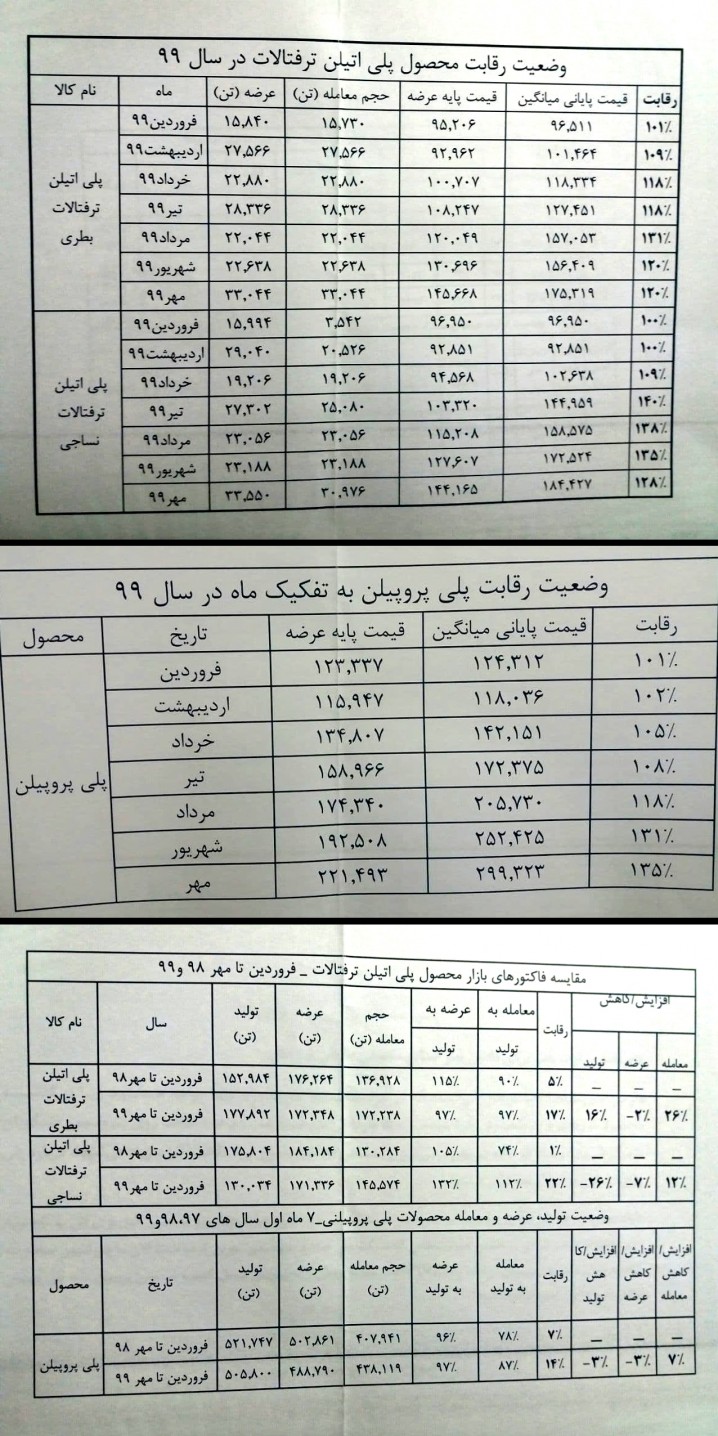 وضعیت رقابت محصول پلی اتیلن ترفتالات در سال ۹۹
نام کالا ماه عرضه (تن) حجم معامله (تن) قیمت پایه عرضه قیمت پایانی میانگین رقابت
پلی اتیلن ترفتالات بطری
فروردین۹۹ ۱۵,۸۴۰ ۱۵,۷۳۰ ۹۵,۲۰۶ ۹۶,۵۱۱ ۱۰۱٪
اردیبهشت۹۹ ۲۷,۵۶۶ ۲۷,۵۶۶ ۹۲,۹۶۲ ۱۰۱,۴۶۴ ۱۰۹٪
خرداد۹۹ ۲۲,۸۸۰ ۲۲,۸۸۰ ۱۰۰,۷۰۷ ۱۱۸,۳۳۴ ۱۱۸٪
تیر۹۹ ۲۸,۳۳۶ ۲۸,۳۳۶ ۱۰۸,۲۴۷ ۱۲۷,۴۵۱ ۱۱۸٪
مرداد۹۹ ۲۲,۰۴۴ ۲۲,۰۴۴ ۱۲۰,۰۴۹ ۱۵۷,۰۵۳ ۱۳۱٪
شهریور۹۹ ۲۲,۶۳۸ ۲۲,۶۳۸ ۱۳۰,۶۹۶ ۱۵۶,۴۰۹ ۱۲۰٪
مهر۹۹ ۳۳,۰۴۴ ۳۳,۰۴۴ ۱۴۵,۶۶۸ ۱۷۵,۳۱۹ ۱۲۰٪
پلی اتیلن ترفتالات نساجی
فروردین۹۹ ۱۵,۹۹۴ ۳,۵۴۲ ۹۶,۹۵۰ ۹۶,۹۵۰ ۱۰۰٪
اردیبهشت۹۹ ۲۹,۰۴۰ ۲۰,۵۲۶ ۹۲,۸۵۱ ۹۲,۸۵۱ ۱۰۰٪
خرداد۹۹ ۱۹,۲۰۶ ۱۹,۲۰۶ ۹۴,۵۶۸ ۱۰۲,۶۳۸ ۱۰۹٪
تیر۹۹ ۲۷,۳۰۲ ۲۵,۰۸۰ ۱۰۳,۳۲۰ ۱۴۴,۹۵۹ ۱۴۰٪
مرداد۹۹ ۲۳,۰۵۶ ۲۳,۰۵۶ ۱۱۵,۲۰۸ ۱۵۸,۵۷۵ ۱۳۸٪
شهریور۹۹ ۲۳,۱۸۸ ۲۳,۱۸۸ ۱۲۷,۶۰۷ ۱۷۲,۵۲۴ ۱۳۵٪
مهر۹۹ ۳۳,۵۵۰ ۳۰,۹۷۶ ۱۴۴,۱۶۵ ۱۸۴,۴۲۷ ۱۲۸٪
وضعیت رقابت پلی پروپیلن به تفکیک ماه در سال ۹۹
محصول تاریخ قیمت پایه عرضه قیمت پایانی میانگین رقابت
پلی پروپیلن
فروردین ۱۲۳,۳۳۷ ۱۲۴,۳۱۲ ۱۰۱٪
اردیبهشت ۱۱۵,۹۴۷ ۱۱۸,۰۳۶ ۱۰۲٪
خرداد ۱۳۴,۸۰۷ ۱۴۲,۱۵۱ ۱۰۵٪
تیر ۱۵۸,۹۶۶ ۱۷۲,۳۷۵ ۱۰۸٪
مرداد ۱۷۴,۳۴۰ ۲۰۵,۷۳۰ ۱۱۸٪
شهریور ۱۹۲,۵۰۸ ۲۵۲,۴۲۵ ۱۳۱٪
مهر ۲۲۱,۴۹۳ ۲۹۹,۳۲۳ ۱۳۵٪
مقایسه فاکتورهای بازار محصول پلی اتیلن ترفتالات _ فروردین تا مهر ۹۸ و۹۹
نام کالا سال تولید (تن) عرضه (تن) حجم معامله (تن) عرضه به تولید معامله به تولید رقابت افزایش/کاهش
تولید عرضه معامله
پلی اتیلن ترفتالات بطری
فروردین تا مهر۹۸ ۱۵۲,۹۸۴ ۱۷۶,۲۶۴ ۱۳۶,۹۲۸ ۱۱۵٪ ۹۰٪ ۵٪ _ _ _
فروردین تا مهر۹۹ ۱۷۷,۸۹۲ ۱۷۲,۳۴۸ ۱۷۲,۲۳۸ ۹۷٪ ۹۷٪ ۱۷٪ ۱۶٪ -۲٪ ۲۶٪
پلی اتیلن ترفتالات نساجی
فروردین تا مهر۹۸ ۱۷۵,۸۰۴ ۱۸۴,۱۸۴ ۱۳۰,۲۸۴ ۱۰۵٪ ۷۴٪ ۱٪ _ _ _
فروردین تا مهر۹۹ ۱۳۰,۰۳۴ ۱۷۱,۳۳۶ ۱۴۵,۵۷۴ ۱۳۲٪ ۱۱۲٪ ۲۲٪ -۲۶٪ -۷٪ ۱۲٪
وضعیت تولید، عرضه و معامله محصولات پلی پروپیلنی_۷ ماه اول سال های ۹۸،۹۷و۹۹
محصول تاریخ تولید (تن) عرضه (تن) حجم معامله (تن) عرضه به تولید معامله به تولید رقابت افزایش/کاهش تولید افزایش/کاهش عرضه افزایش/کاهش معامله
پلی پروپیلن
فروردین تا مهر ۹۸ ۵۲۱,۷۴۷ ۵۰۲,۸۶۱ ۴۰۷,۹۴۱ ۹۶٪ ۷۸٪ ۷٪ _ _ _
فروردین تا مهر ۹۹ ۵۰۵,۸۰۰ ۴۸۸,۷۹۰ ۴۳۸,۱۱۹ ۹۷٪ ۸۷٪ ۱۴٪ -۳٪ -۳٪ ۷٪